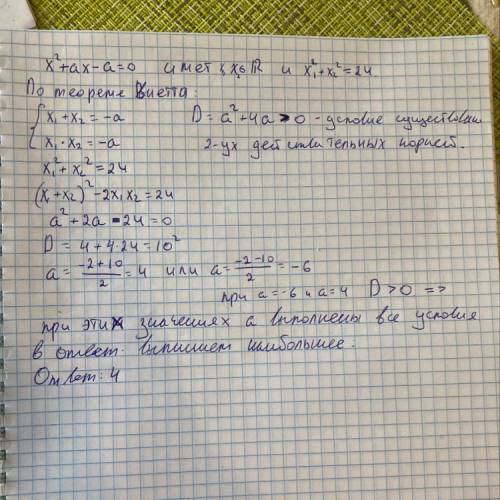 x²+ax-a=0 имеет x₁,x₂∈ℝ и x₁²+x₂²=24
По теореме Виетта:
{ x₁+x₂=-a
x₁·x₂=-a
D=a²+4a>0 - условие существован
2-ух действительных корней.
x₁²+x₂²=24
(x₁+x₂)²-2x₁x₂=24
a²+2a-24=0
D=4+4·24=10²
a=\frac{-2+10}{2}=4 или a=\frac{-2-10}{2}=-6
при a=-6 и a=4 D>0 =>
при этих значениях a выполнены все условия
в ответ выпишем наибольшее.
Ответ: 4